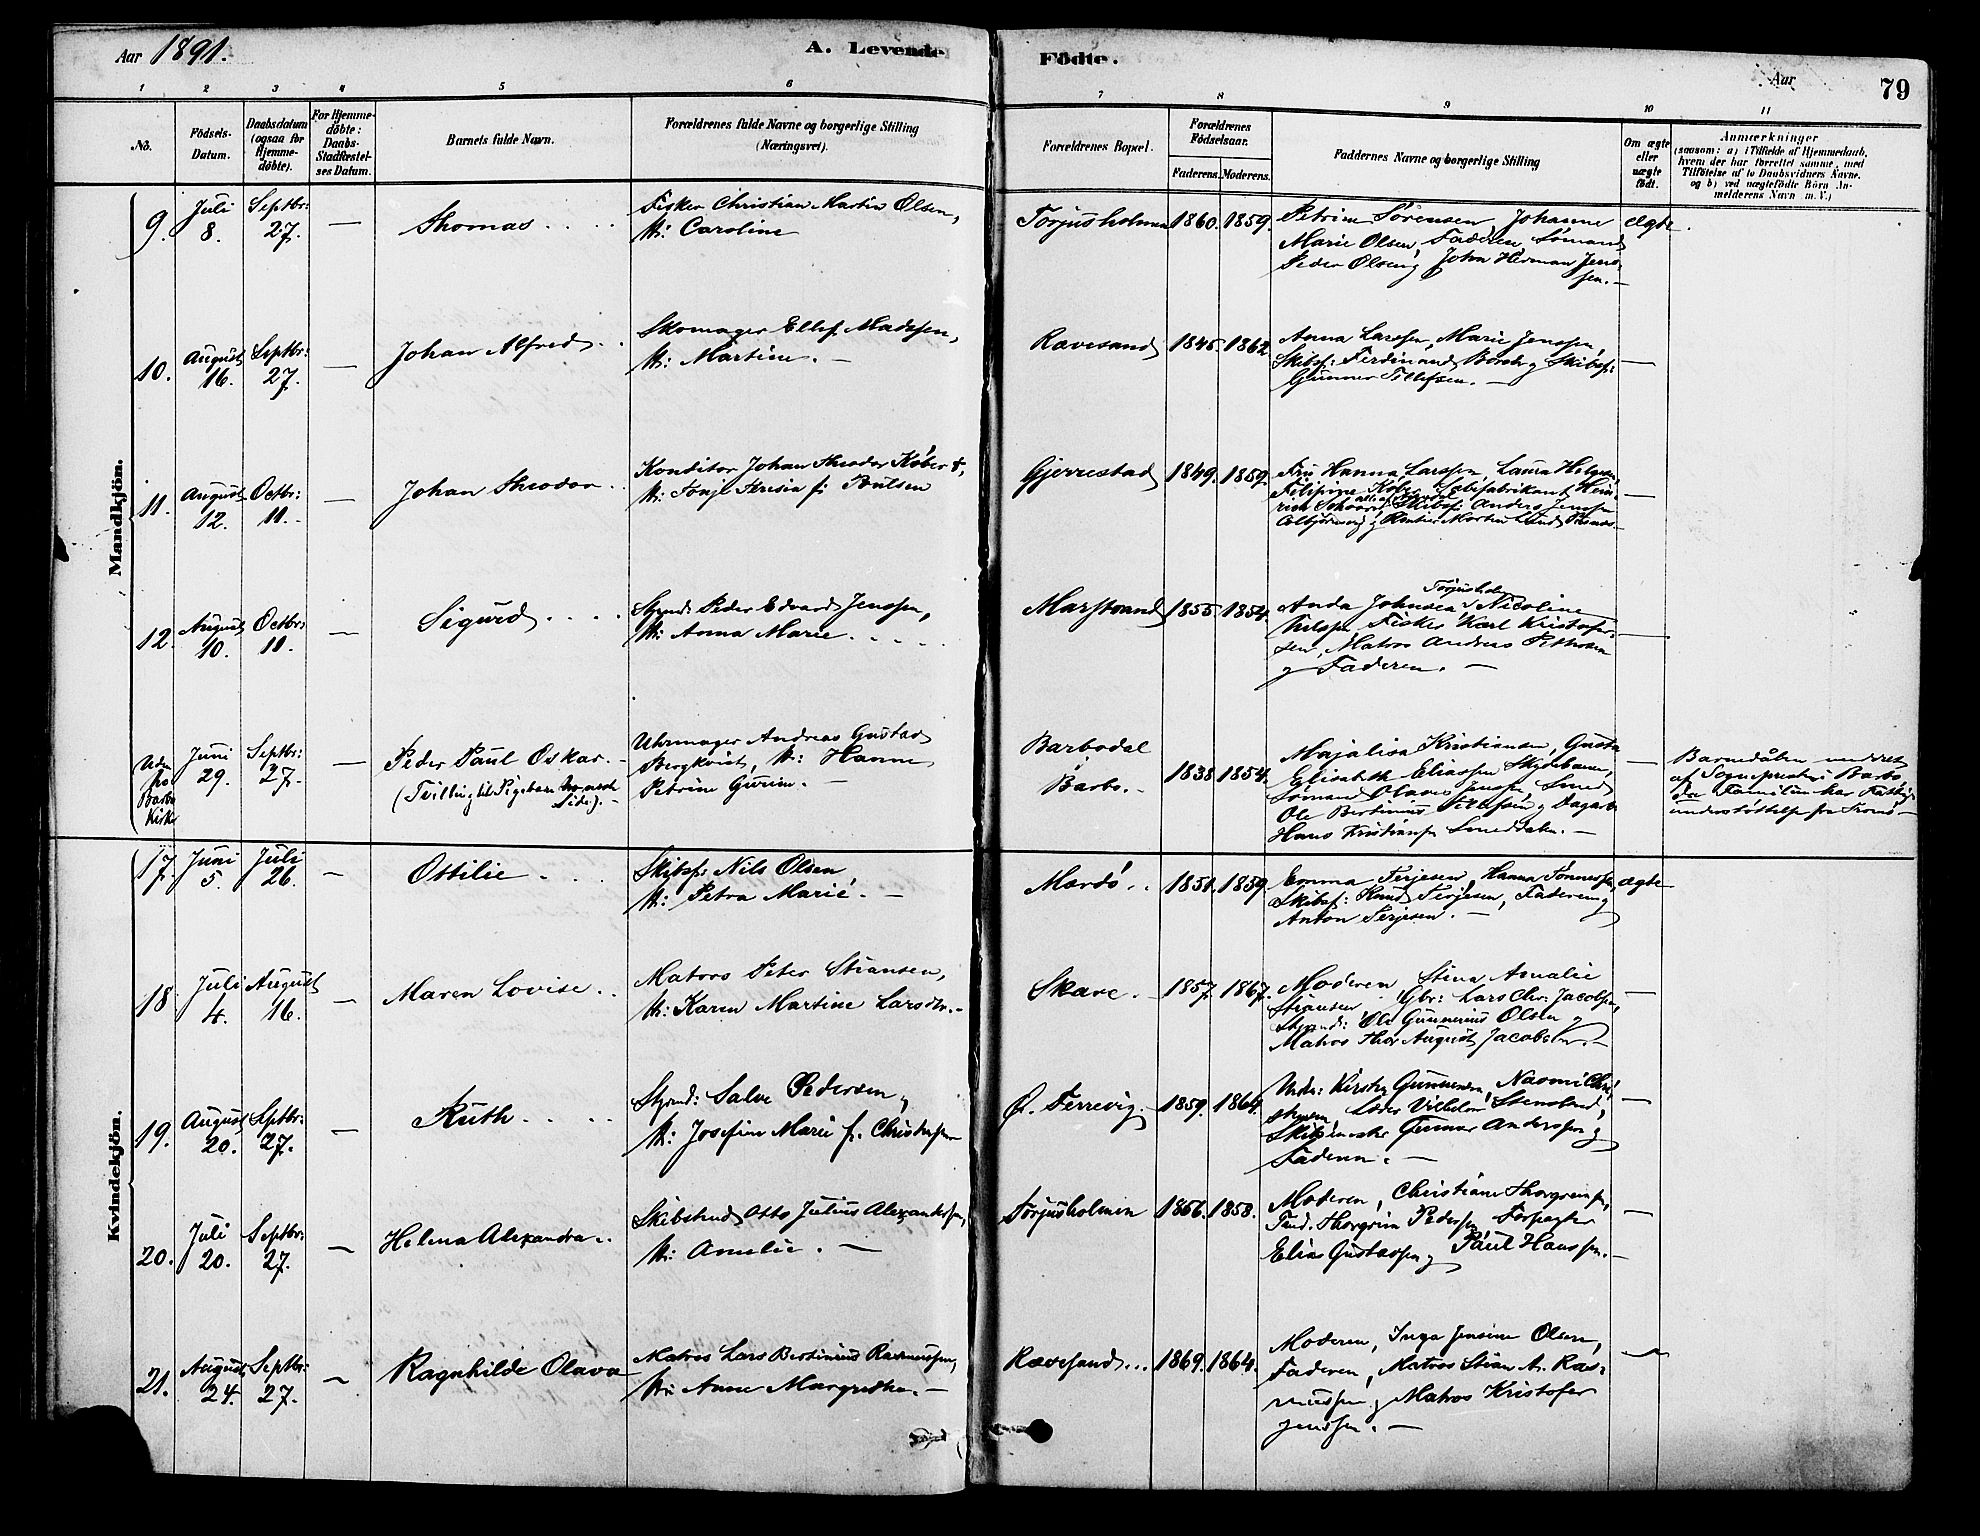 Aar 1891.
A. Levende Födte.
Aar
79
1 2 3 4 5 6 7 8 9 10 11
No.
Födsels-
Datum.
Daabsdatum
(ogsaa for
Hjemme-
döbte).
For Hjemme-
döbte:
Daabs-
Stadfæstel-
ses Datum.
Barnets fulde Navn.
Forældrenes fulde Navne og borgerlige Stilling
(Næringsvei).
Forældrenes Bopæl.
Forældrenes
Födselsaar.
Faderens. Moderens.
Faddernes Navne og borgerlige Stilling
Om ægte
eller
uægte
født.
Anmærkninger
(saasom: a) i Tilfælde af Hjemmedaab,
hvem der har forrettet samme, med
Tilföielse af to Daabsvidners Navne,
og b) ved uægtefödte Börn An-
melderens Navn m. V.)
Mandkjön.
9. Juli 8. Septbr: 27. — Thomas
Fisker Christian Martin Olsen,
H: Caroline
Torjusholmen 1860. 1859.
Petrine Sørensen, Johanne
Marie Olsen, Faderen, Sømand
Peder Olsen og John Herman Jens-
sen. —
ægte
10. August 16. Septbr: 27. — Johan Alfred
Skomager Ellef Madssen,
H: Martine. —
Rævesand 1845. 1862
Anna Larssen, Marie Jenssen,
Skibsf: Ferdinand og Skibsf:
Gunner Tellefsen. —
—
11. August 12. Octbr: 11. — Johan Theodor
Konditor Johan Theodor Köber &,
H: Tonje Teresia f: Poulsen
Gjerrestad 1849. 1859.
Fru Hanna Larssen, Laura
Filipine Köber,
Skibsf: Anders Jenssen
—
12. August 10. Octbr: 11. — Sigurd
Styrmd: Peder Edvard Jenssen,
H: Anna Marie
Marstrand 1855. 1854.
Torjusholm
Anda Johnsen, Nicoline
Fisker Karl Kristofer-
sen, Matros Andreas
og Faderen. —
—
Uden
fra
Barbo
Kirke
Juni 29. Septbr: 27. — Peder Paul Oskar. —
(Tvilling til Pigebarn No næste
Side). —
Uhrmager Andreas Gustav
Bergkvist, H: Hanne
Petrine Gurine. —
Barbodal
Barbo. — 1838 1854.
Majalisa Kristiansen, Gusta
Elisabeth Eliassen
Sømand Olaves Jenssen, Smed
Ole Bertinius og Dagarb.
Hans Kristiansen Smeddalen. —
—
Barnedåben
af Sognepresten i Barbo
da Familien har Fattig-
understøttelse fra Tromø —
Kvindekjön.
17. Juni 5. Juli 26. — Ottilie
Skibsf: Nils Olsen
H: Petra Marie. —
Mærdö 1851. 1859.
Emma Terjesen, Hanna Tønnessen,
Skibsf: Knud Terjesen, Faderen og
Anton Terjesen. —
ægte
18. Juli 4. August 16. — Maren Lovise
Matros Peter Stiansen,
H: Karen Martine Larsdtr. —
Skare. — 1857. 1867.
Moderen, Stina Amalie
Stiansen, Gbr: Lars Chr. Jacobsen,
Styrmd: Ole Gunnerius Olsen og
Matros Thor August Jacobsen. —
—
19. August 20. Septbr: 27. — Ruth
Styrmd: Salve Pedersen,
H: Josefine Marie f: Christensen
Ø. Færrevig. 1859. 1864.
Kirsten Gunnersen, Naomi
Vilhelm Stensland,
Gunnar Anderssen og
Faderen. —
—
20. Juli 20. Septbr: 27. — Helena Alexandra
Skibstmd Otto Julius Alexandersen,
H: Amelie. —
Torjusholmen 1856. 1858.
Moderen, Christiane Thorgrimsen,
Tmd. Thorgrim Pedersen, Forpagter
Elias Gustavsen og Paul Hanssen. —
—
21. August 24. Septbr: 27. — Ragnhilde Olava
Matros Lars Bertinius Rasmussen,
H: Anne Margrethe. —
Rævesand 1869. 1864.
Moderen, Inga Jensine Olsen,
Faderen, Matros Stian A. Ras-
mussen og Matros Kristofer
Jenssen. —
—